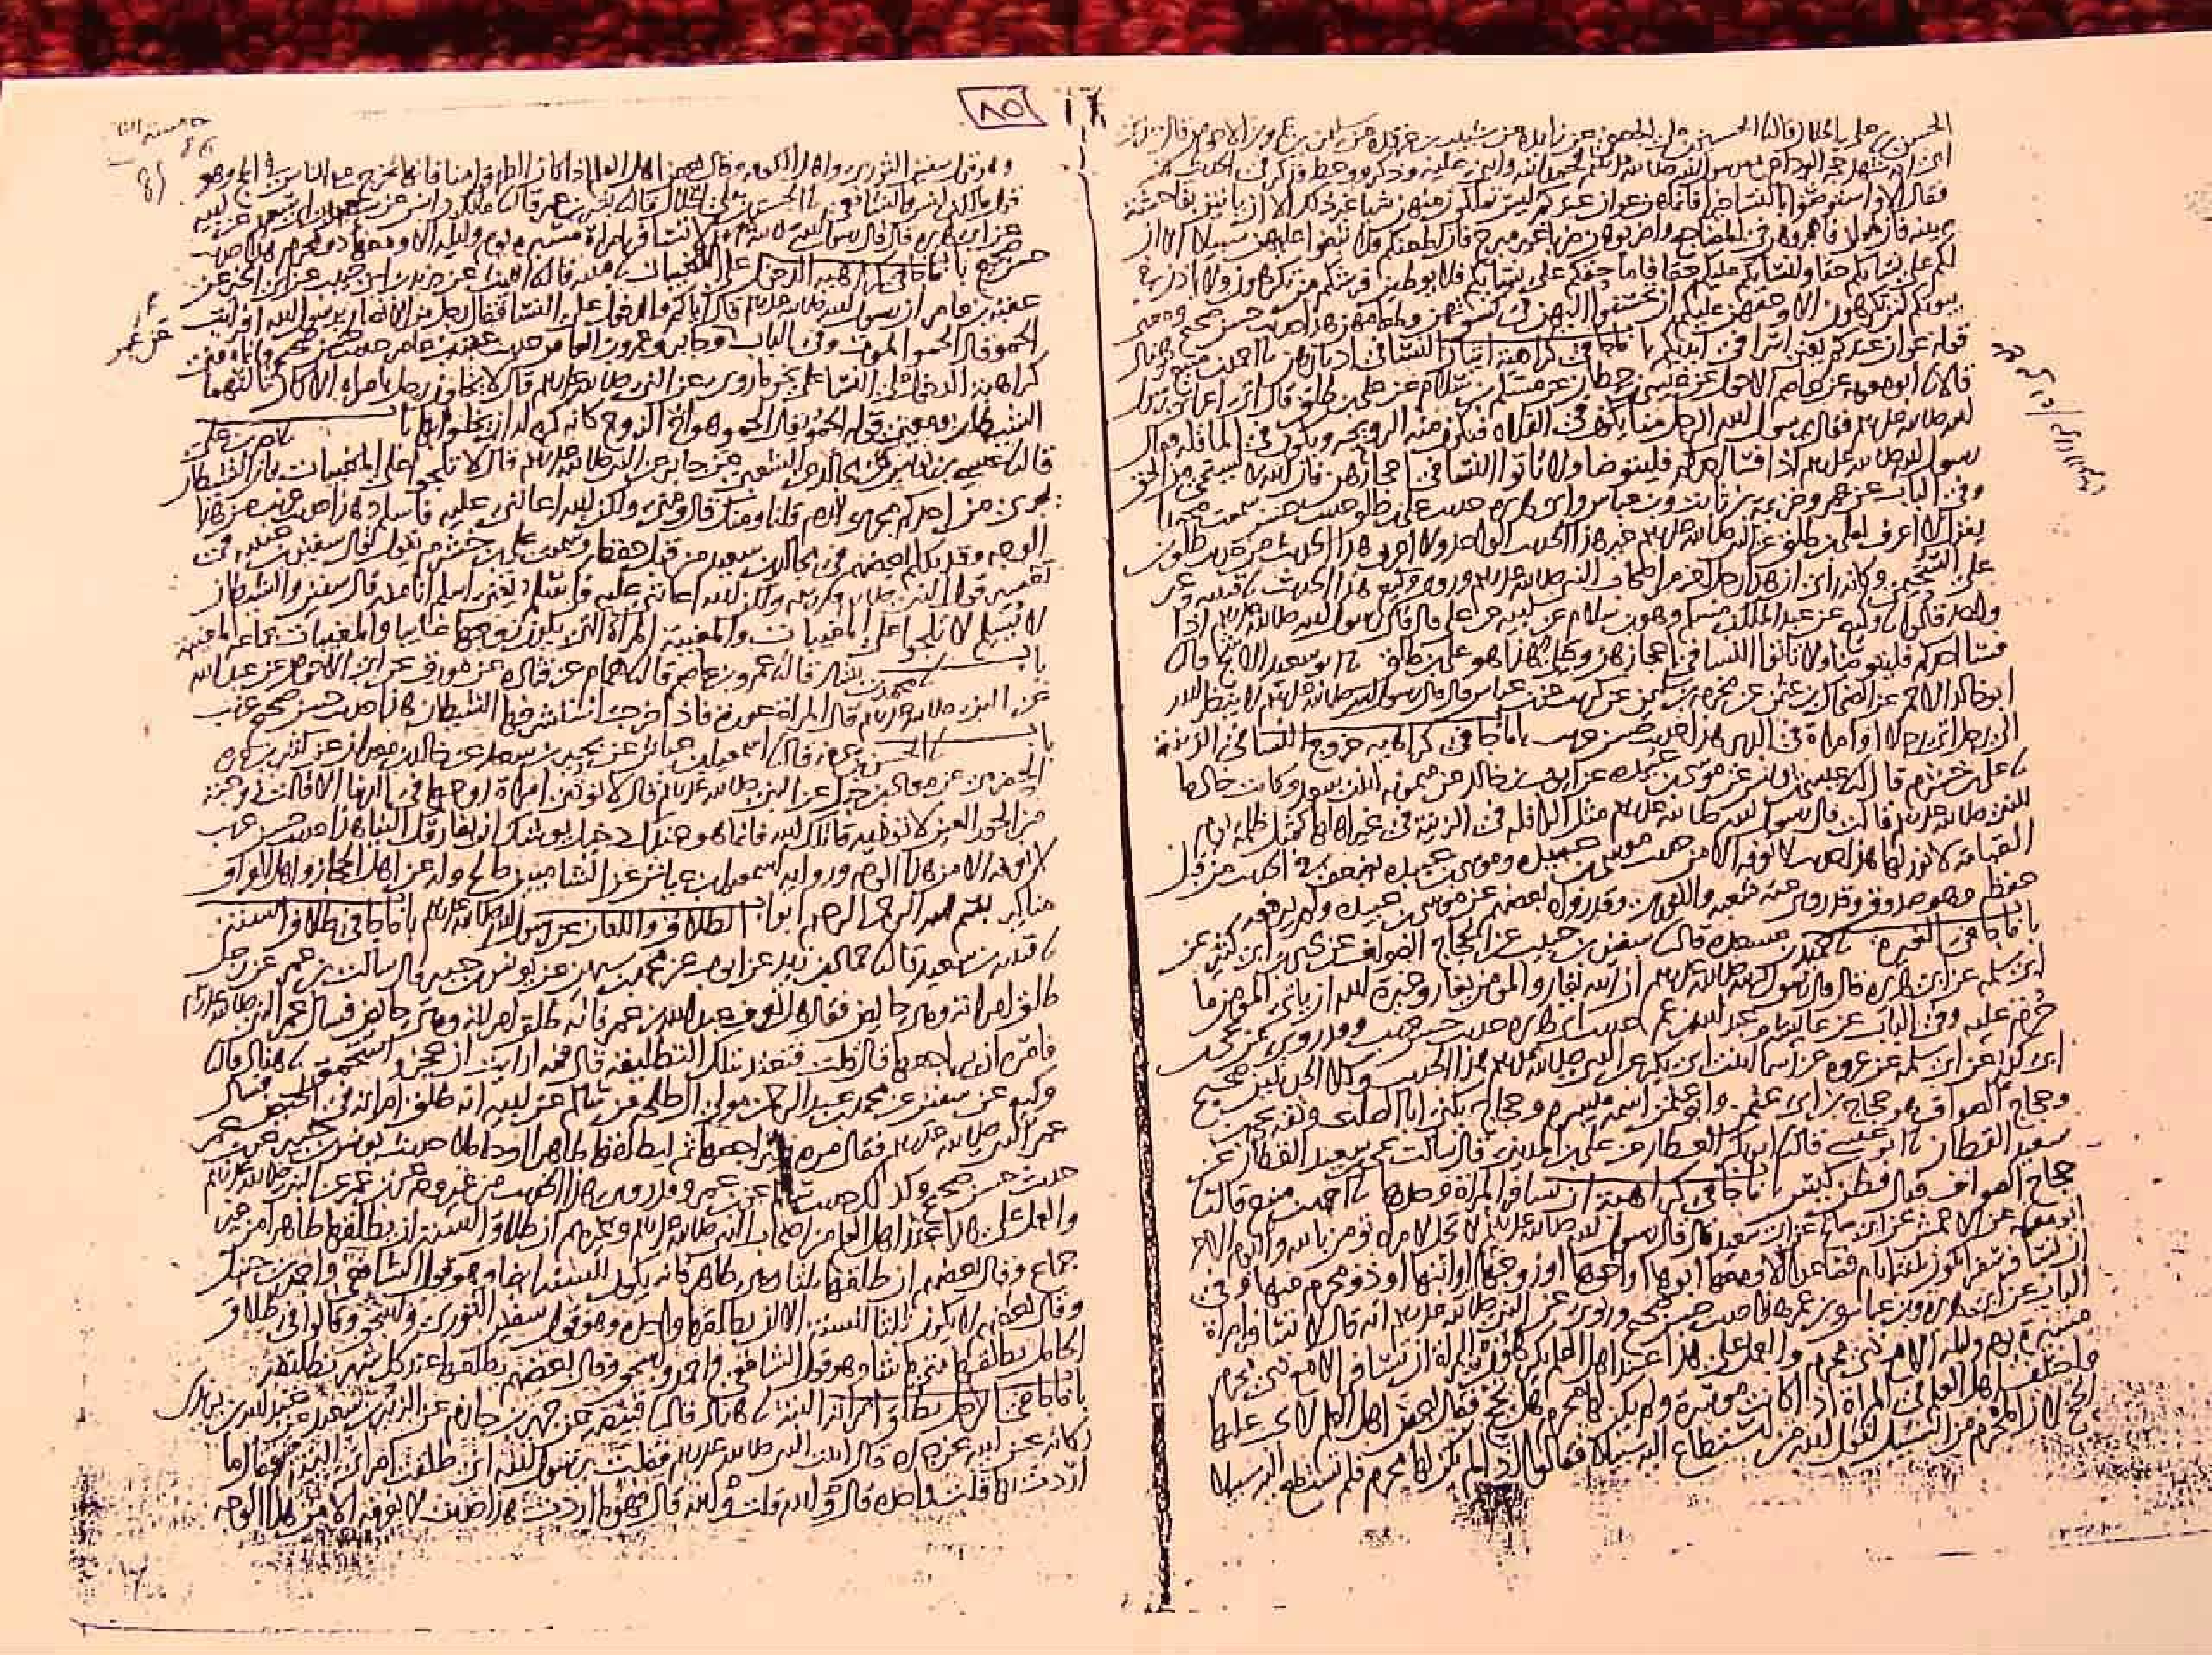 الحسن بن علي الخلال قال نا الحسين بن علي الجعفي عن زايده عن شبيب بن غرقده عن سليمن بن عمرو بن الاحوص قال
فقال الا واستوصوا بالنساء خيرا فانما هن عوان عندكم ليس تملكون منهن شيا غير ذلك الا ان ياتين بفاحشة
مبينه فان فعلن فاهجروهن في المضاجع واضربوهن ضربا غير مبرح فان اطعنكم فلا تبغوا عليهن سبيلا الا ان
لكم على نسايكم حقا ولنسايكم عليكم حقا فاما حقكم على نسايكم فلا يوطين فرشكم من تكرهون ولا ياذن في
بيوتكم لمن تكرهون الا وحقهن عليكم ان تحسنوا اليهن في كسوتهن وطعامهن هذا حديث حسن صحيح ومعنى
قوله عوان عندكم يعني اسرا في ايديكم باب ما جا في كراهية اتيان النسا في ادبارهن نا احمد بن منيع وهناد
قالا نا ابو معويه عن عاصم الاحول عن عيسى بن حطان عن مسلم بن سلام عن علي بن طلق قال اتى اعرابي رسول
الله صلى الله عليه وسلم فقال يرسول الله الرجل منا يكون في الفلاه فتكون منه الرويحه ويكون في الما قله فقال
رسول الله صلى الله عليه وسلم اذا فسا احدكم فليتوضا ولا تاتوا النسا في اعجازهن فان الله لا يستحيي من الحق
وفي الباب عن عمر وخزيمه بن ثابت وبن عباس وابي هريره حديث علي بن طلق حديث حسن سمعت محمدا
يقول لا اعرف لعلي بن طلق عن النبي صلى الله عليه وسلم غير هذا الحديث الواحد ولا اعرف هذا الحديث من حديث طلق بن
علي السحيمي وكانه راى ان هذا رجل اخر من اصحاب النبي صلى الله عليه وسلم وروى وكيع هذا الحديث نا قتيبه وغير
واحد قالوا نا وكيع عن عبد الملك بن مسلم وهو بن سلام عن ابيه عن علي قال قال رسول الله صلى الله عليه وسلم اذا
فسا احدكم فليتوضا ولا تاتوا النسا في اعجازهن وعلي هذا هو علي بن طلق نا ابو سعيد الاشج قال نا
ابو خالد الاحمر عن الضحاك بن عثمن عن مخرمه بن سليمن عن كريب عن بن عباس قال قال رسول الله صلى الله عليه وسلم لا ينظر الله
الى رجل اتى رجلا او امراة في الدبر هذا حديث حسن غريب باب ما جا في كراهيه خروج النسا في الزينة
نا علي بن خشرم قال نا عيسى بن يونس عن موسى بن عبيده عن ايوب بن خالد عن ميمونه ابنت سعد وكانت خادما
للنبي صلى الله عليه وسلم قالت قال رسول الله صلى الله عليه وسلم مثل الرافله في الزينة في غير اهلها كمثل ظلمه يوم
القيامه لا نور لها هذا حديث لا نعرفه الا من حديث موسى بن عبيده وموسى بن عبيده يضعف في الحديث من قبل
حفظه وهو صدوق وقد روى عنه شعبه والثوري وقد رواه بعضهم عن موسى بن عبيده ولم يرفعه
باب ما جا في الغيرة نا حميد بن مسعده قال نا سفين بن حبيب عن الحجاج الصواف عن يحيى بن ابي كثير عن
ابي سلمه عن ابي هريره قال قال رسول الله صلى الله عليه وسلم ان الله يغار والمومن يغار وغيرة الله ان ياتي المومن ما
حرم عليه وفي الباب عن عايشه وعبد الله بن عمر حديث ابي هريره حديث حسن غريب وقد روي عن يحيى
بن ابي كثير عن ابي سلمه عن عروه عن اسما ابنت ابي بكر عن النبي صلى الله عليه وسلم هذا الحديث وكلا الحديثين صحيح
وحجاج الصواف هو حجاج بن ابي عثمن وابو عثمن اسمه ميسره وحجاج يكنى ابا الصلت وثقه يحيى بن
سعيد القطان نا ابو عيسى قال نا ابو بكر العطار عن علي بن المديني قال سالت يحيى بن سعيد القطان عن
حجاج الصواف فقال فطن كيس باب ما جا في كراهية ان تسافر المراة وحدها نا احمد بن منيع قال نا
ابو معويه عن الاعمش عن ابي صالح عن ابي سعيد قال قال رسول الله صلى الله عليه وسلم لا يحل لامراه تومن بالله واليوم الاخر
ان تسافر سفرا يكون ثلثه ايام فصاعدا الا ومعها ابوها او اخوها او زوجها او ابنها او ذو محرم منها وفي
الباب عن ابي هريره وبن عباس وبن عمر هذا حديث حسن صحيح وروي عن النبي صلى الله عليه وسلم انه قال لا تسافر امراة
مسيرة يوم وليله الا مع ذي محرم والعمل على هذا عند اهل العلم يكرهون للمراة ان تسافر الا مع ذي محرم
واختلف اهل العلم في المراة اذا كانت موسرة ولم يكن لها محرم هل تحج فقال بعض اهل العلم لا يجب عليها
الحج لان المحرم من السبيل لقول الله من استطاع اليه سبيلا فقالوا اذا لم يكن لها محرم فلم تستطع اليه سبيلا
٨٥
وهو قول سفين الثوري واهل الكوفه وقال بعض اهل العلم اذا كان الطريق امنا فانها تخرج مع الناس في الحج وهو
قول مالك بن انس والشافعي نا الحسن بن علي الخلال قال نا بشر بن عمر قال نا ملك بن انس عن سعيد بن ابي سعيد عن ابيه
عن ابي هريره قال قال رسول الله صلى الله عليه وسلم لا تسافر امراة مسيرة يوم وليله الا ومعها ذو محرم هذا حديث
حسن صحيح باب ما جا في كراهية الدخول على المغيبات نا قتيبه قال نا الليث عن يزيد بن ابي حبيب عن ابي الخير عن
عقبه بن عامر ان رسول الله صلى الله عليه وسلم قال اياكم والدخول على النسا فقال رجل من الانصار يرسول الله افرايت
الحمو قال الحمو الموت وفي الباب عن عمر وجابر وعمرو بن العاص حديث عقبه بن عامر حديث حسن صحيح وانما معنى
كراهية الدخول على النسا على نحو ما روي عن النبي صلى الله عليه وسلم قال لا يخلون رجل بامراه الا كان ثالثهما
الشيطان ومعنى قوله الحمو يقال الحمو هو اخو الزوج كانه كره له ان يخلو بها باب نا نصر بن علي
قال نا عيسى بن يونس عن مجالد عن الشعبي عن جابر عن النبي صلى الله عليه وسلم قال لا تلجوا على المغيبات فان الشيطان
يجري من احدكم مجرى الدم قلنا ومنك قال ومني ولكن الله اعانني عليه فاسلم هذا حديث غريب من هذا
الوجه وقد تكلم بعضهم في مجالد بن سعيد من قبل حفظه وسمعت علي بن خشرم يقول قال سفين بن عيينه في
تفسير قول النبي صلى الله عليه وسلم ولكن الله اعانني عليه فاسلم يعني اسلم انا منه قال سفين والشيطان
لا يسلم لا تلجوا على المغيبات والمغيبة المراة التي يكون زوجها غايبا والمغيبات جماعه المغيبة
باب نا محمد بن بشار قال نا عمرو بن عاصم قال نا همام عن قتاده عن مورق عن ابي الاحوص عن عبد الله
عن النبي صلى الله عليه وسلم قال المراة عورة فاذا خرجت استشرفها الشيطان هذا حديث حسن صحيح غريب
باب نا الحسن بن عرفه قال نا اسمعيل بن عياش عن بحير بن سعد عن خالد بن معدان عن كثير بن مره
الحضرمي عن معاذ بن جبل عن النبي صلى الله عليه وسلم قال لا توذي امراة زوجها في الدنيا الا قالت زوجته
من الحور العين لا توذيه قاتلك الله فانما هو عندك دخيل يوشك ان يفارقك الينا هذا حديث حسن غريب
لا نعرفه الا من هذا الوجه ورواية اسمعيل بن عياش عن الشاميين صالح وله عن اهل الحجاز واهل العراق
مناكير بسم الله الرحمن الرحيم ابواب الطلاق واللعان عن رسول الله صلى الله عليه وسلم باب ما جا في طلاق السنة
نا قتيبه بن سعيد قال نا حماد بن زيد عن ايوب عن محمد بن سيرين عن يونس بن جبير قال سالت بن عمر عن رجل
طلق امراته وهي حايض فقال هل تعرف عبد الله بن عمر فانه طلق امراته وهي حايض فسال عمر النبي صلى الله عليه وسلم
فامره ان يراجعها قال قلت فيعتد بتلك التطليقه قال فمه ارايت ان عجز واستحمق نا هناد قال نا
وكيع عن سفين عن محمد بن عبد الرحمن مولى ال طلحه عن سالم عن ابيه انه طلق امراته في الحيض فسال
عمر النبي صلى الله عليه وسلم فقال مره فليراجعها ثم ليطلقها طاهرا او حاملا حديث يونس بن جبير عن بن عمر
حديث حسن صحيح وكذلك حديث سالم عن بن عمر وقد روي هذا الحديث من غير وجه عن بن عمر عن النبي صلى الله عليه وسلم
والعمل على هذا عند اهل العلم من اصحاب النبي صلى الله عليه وسلم وغيرهم ان طلاق السنة ان يطلقها طاهرا من غير
جماع وقال بعضهم ان طلقها ثلثا وهي طاهر فانه يكون للسنة ايضا وهو قول الشافعي واحمد بن حنبل
وقال بعضهم لا يكون ثلثا للسنة الا ان يطلقها واحدة وهو قول سفين الثوري واسحق وقالوا في طلاق
الحامل يطلقها متى ما شا وهو قول الشافعي واحمد واسحق وقال بعضهم يطلقها عند كل شهر تطليقه
باب ما جا في الرجل يطلق امراته البتة نا هناد قال نا قبيصه عن جرير بن حازم عن الزبير بن سعيد عن عبد الله بن يزيد بن
ركانه عن ابيه عن جده قال اتيت النبي صلى الله عليه وسلم فقلت يرسول الله اني طلقت امراتي البتة فقال ما
اردت بها قلت واحدة قال والله قلت والله قال فهو ما اردت هذا حديث لا نعرفه الا من هذا الوجه